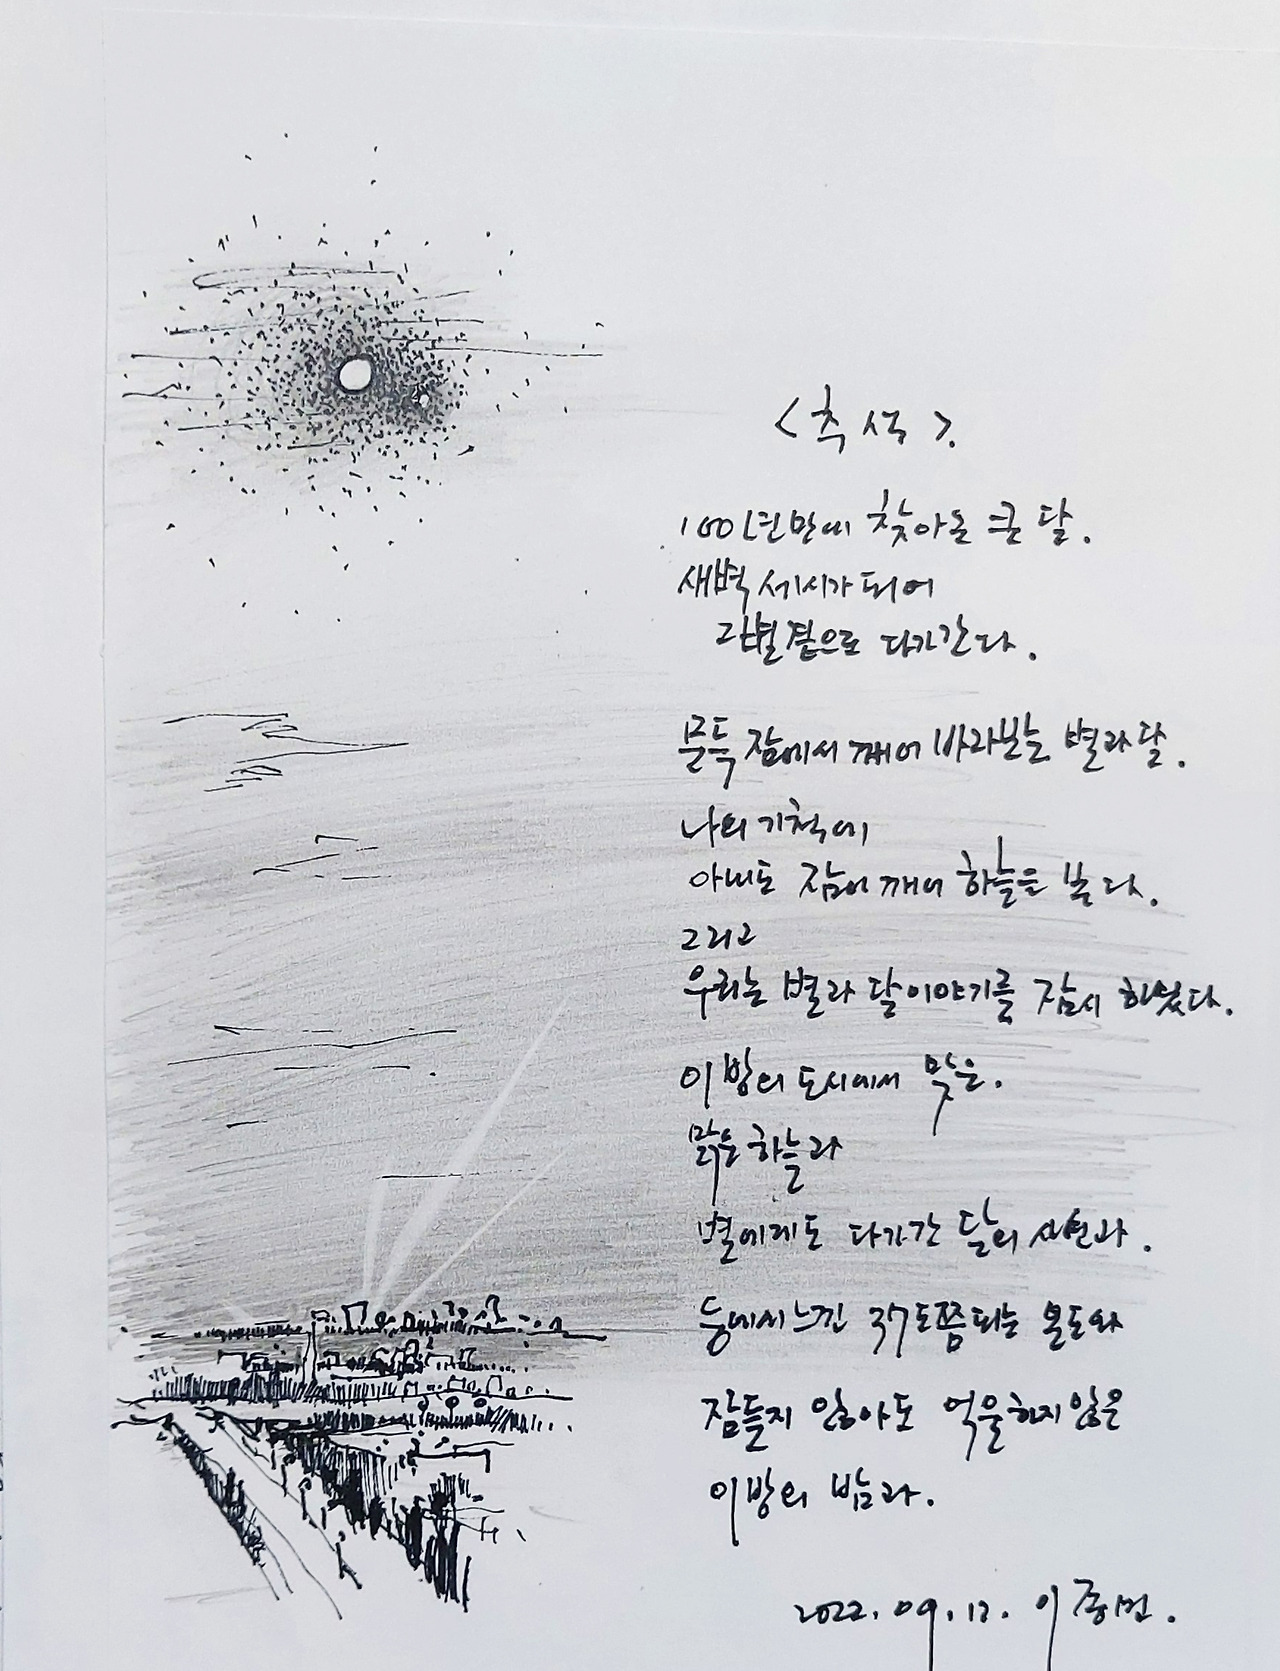 <추석>.
100년만에 찾아온 큰 달.
새벽 세시가 되어
큰별 곁으로 다가간다.
문득 잠에서 깨어 바라보는 별과 달.
나의 기척에
아내도 잠이 깨어 하늘을 본다.
그리고
우리는 별과 달 이야기를 잠시 하였다.
이방의 도시에서 맞은.
맑은 하늘과
별에게도 다가간 달의 시선과.
등에서 느낀 37도쯤 되는 온도와
잠들지 않아도 억울하지 않은
이방의 밤과.
2022. 09. 12. 이종민.